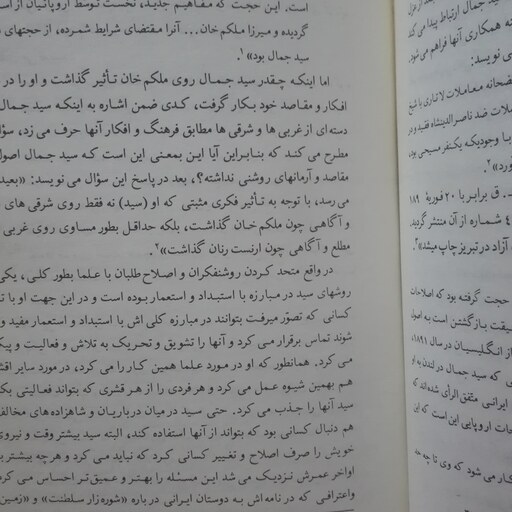 است. این حجت که مفاهیم جدید، نخست توسط اروپائیان از اس
گردیده و میرزا ملکم خان... آنرا مقتضای شرایط شمرده، از حجتهای
سید جمال بود»۱.
اما اینکه چقدر سید جمال روی ملکم خان تأثیر گذاشت و او را در
افکار و مقاصد خود بکار گرفت، کدی ضمن اشاره به اینکه سید جمال
دسته‌ای از غربی‌ها و شرقی‌ها مطابق فرهنگ و افکار آنها حرف می‌زد، سؤا
مطرح می‌کند که بنابراین آیا این بمعنی این است که سید جمال اصول
مقاصد و آرمانهای روشنی نداشته؟، بعد در پاسخ این سؤال می‌نویسد: «بعید
می‌رسد، با توجه به تأثیر فکری مثبتی که او (سید) نه فقط روی شرقی‌های
و آگاهی چون ملکم خان گذاشت، بلکه حداقل بطور مساوی روی غربی
مطلع و آگاهی چون ارنست رنان گذاشت»۲.
در واقع متحد کردن روشنفکران و اصلاح طلبان با علما بطور کلی، یکی
روشهای سید در مبارزه با استبداد و استعمار بوده است و در این جهت او با ت
کسانی که تصوّر میرفت بتوانند در مبارزه کلی اش با استبداد و استعمار مفید و
شوند تماس برقرار می‌کرد و آنها را تشویق و تحریک به تلاش و فعالیت و پیک
می‌کرد. همانطور که او در مورد علما همین کار را می‌کرد، در مورد سایر اقش
هم بهمین شیوه عمل می‌کرد و هر فردی را از هر قشری که بتواند فعالیتی بک
سید آنها را جذب می‌کرد. حتی سید در میان درباریان و شاهزاده‌های مخالف
هم دنبال کسانی بود که بتواند از آنها استفاده کند، البته سید بیشتر وقت و نیروی
خویش را صرف اصلاح و تغییر کسانی کرد که نباید می‌کرد و هر چه بیشتر به
اواخر عمرش نزدیک می‌شد این مسئله را بهتر و عمیق‌تر احساس می‌کرد
واعترافی که در نامه‌اش به دوستان ایرانی درباره «شوره‌زار سلطنت» و «زمین
جمال ارتباط پیدا می‌کند
ه همکاری آنها فراهم می‌شود.
می‌نویسد:
ضحانه معاملات لاتاری با شیخ
ملات ضد ناصرالدینشاه فقید و در
با وجودیکه یکنفر مسیحی بود
ورد»۲.
ق برابر با ۲۰ فوریهٔ ۱۸۹
۴ شماره از آن منتشر گردید
آزاد در تبریز چاپ میشد»۳.
حجت گرفته بود که اصلاحات
حقیقت بازگشتن است به اصول
از انگلیسیان در سال ۱۸۹۱
ی که سید جمال در لندن به او
ایرانی متفق الرأی شده‌اند که
حات اروپایی این است که این
کار می‌شود که وی تا چه حد